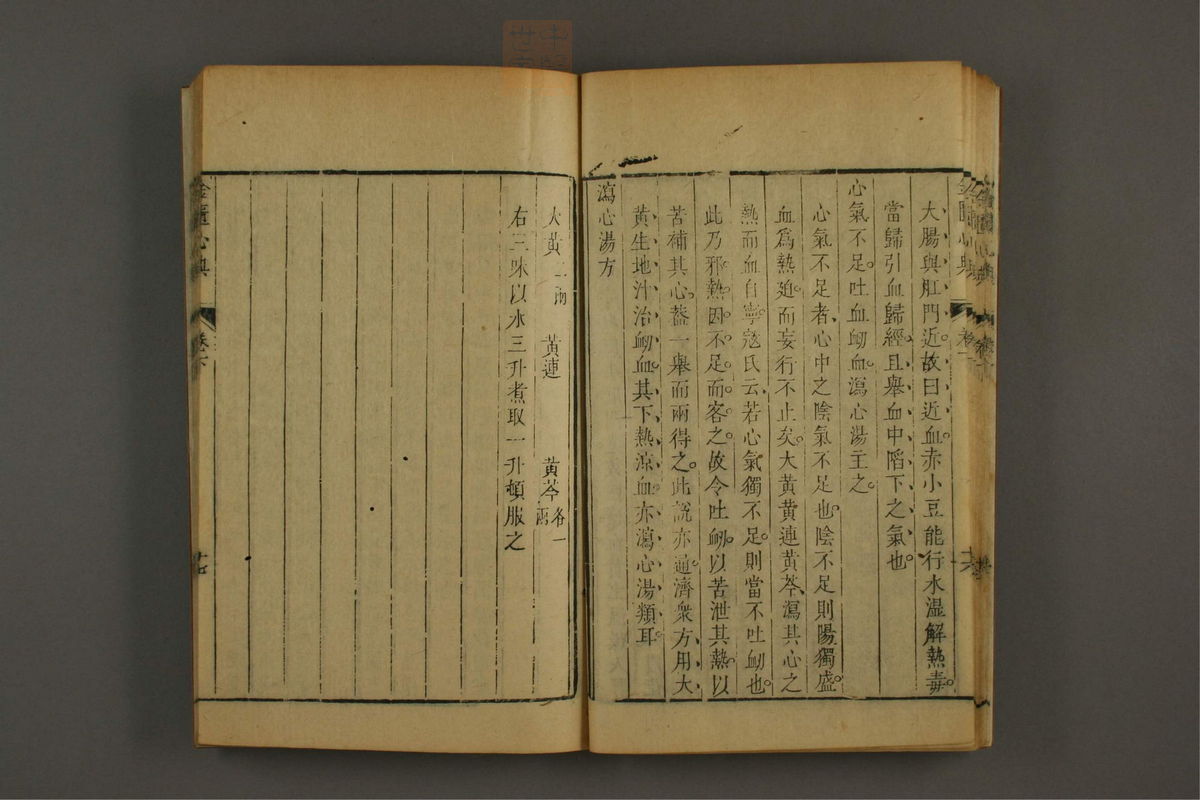 大腸與肛門近。故曰近血。赤小豆能行水濕解熱毒。
當歸引血歸經。且舉血中陷下之氣也。
心氣不足。吐血衂血。瀉心湯主之。
心氣不足者、心中之陰氣不足也。陰不足則陽獨盛。
血爲熱廹。而妄行不止矣。大黃黃連黃芩、瀉其心之
熱而血自寧。寇氏云、若心氣獨不足。則當不吐衂也。
此乃邪熱因不足而客之。故令吐衂。以苦泄其熱。以
苦補其心。葢一舉而兩得之。此說亦通。濟衆方、用大
黃生地汁治衂血。其下熱涼血。亦瀉心湯類耳。
瀉心湯方
大黃二兩 黃連 黃芩各一兩
右三味以水三升煮取一升頓服之
金匱心典
卷下